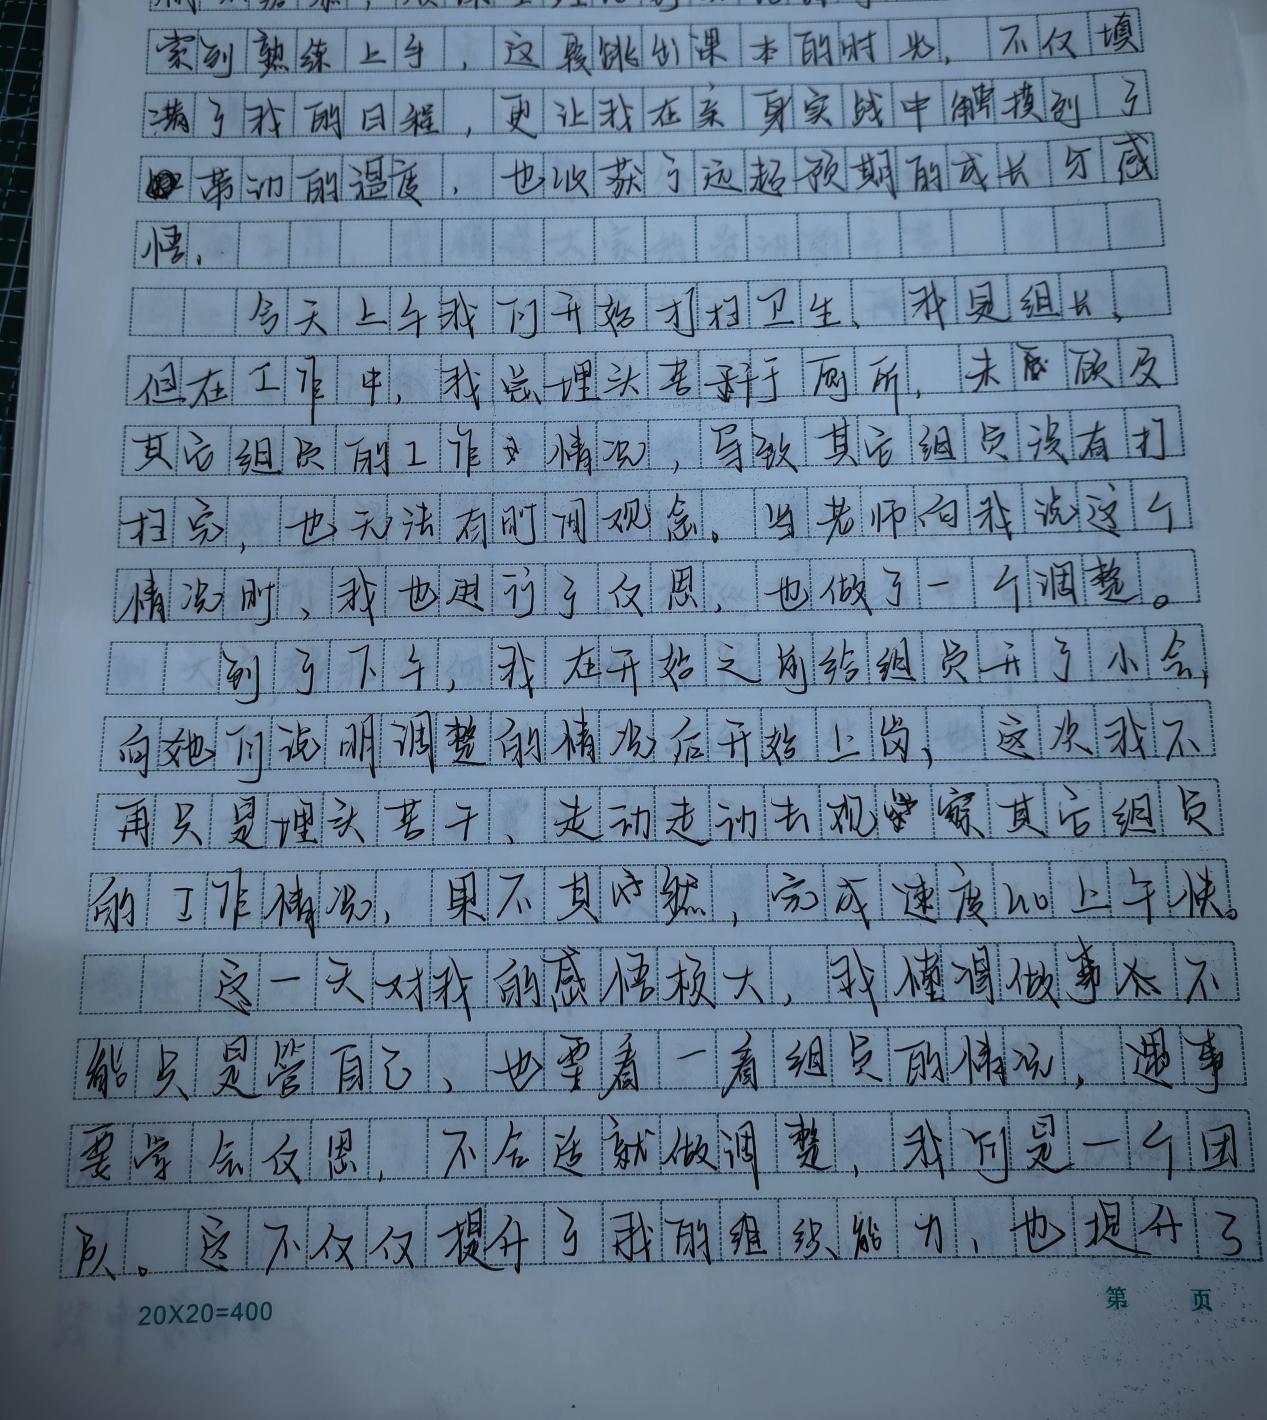 索到熟练上手，这段跳出课本的时光，不仅填
满了我的日程，更让我在亲身实战中触摸到了
劳动的温度，也收获了远超预期的成长与感
悟。
今天上午我们开始打扫卫生、我是组长，
但在工作中，我总埋头苦干于厕所，未顾及
其它组员的工作情况，导致其它组员没有打
扫完，也无法有时间观念。当老师向我说这个
情况时，我也进行了反思，也做了一个调整。
到了下午，我在开始之前给组员开了小会，
向她们说明调整的情况后开始上岗，这次我不
再只是埋头苦干、走动走动去观察其它组员
的工作情况，果不其然，完成速度比上午快。
这一天对我的感悟极大，我懂得做事不
能只是管自己、也要看一看组员的情况，遇事
要学会反思，不合适就做调整，我们是一个团
队。这不仅仅提升了我的组织能力，也提升了
20X20=400
第 页